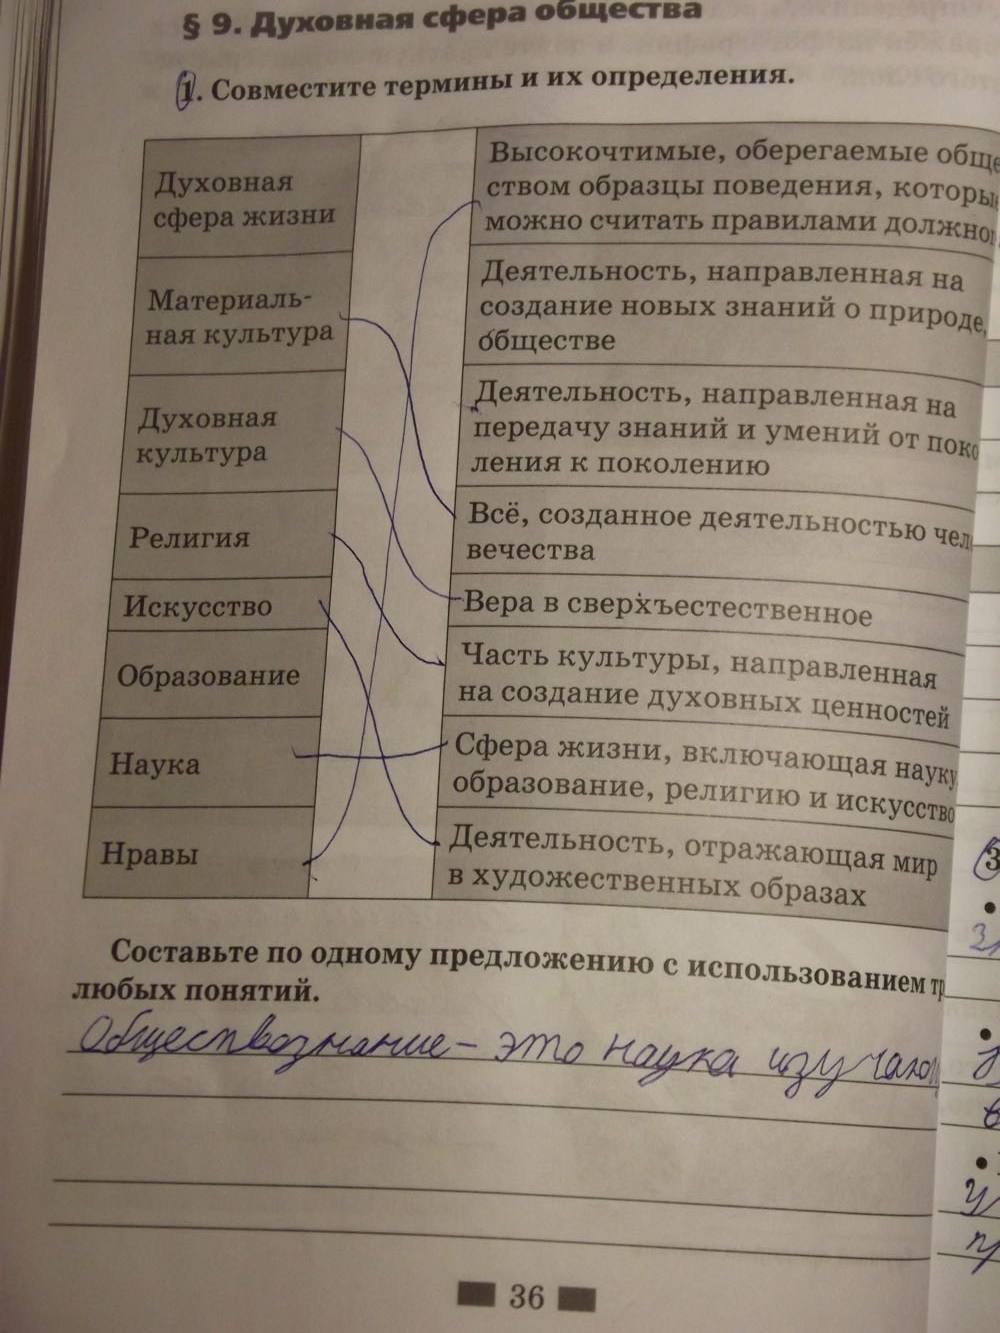 § 9. Духовная сфера общества
1. Совместите термины и их определения.
Духовная
сфера жизни
Высокочтимые, оберегаемые обще
ством образцы поведения, которы
можно считать правилами должно
Материаль-
ная культура
Деятельность, направленная на
создание новых знаний о природе,
обществе
Духовная
культура
Деятельность, направленная на
передачу знаний и умений от поко
ления к поколению
Религия
Всё, созданное деятельностью чел
вечества
Искусство
Вера в сверхъестественное
Образование
Часть культуры, направленная
на создание духовных ценностей
Наука
Сфера жизни, включающая науку,
образование, религию и искусство
Нравы
Деятельность, отражающая мир
в художественных образах
Составьте по одному предложению с использованием тр
любых понятий.
Обществознание – это наука изучаю
36
3